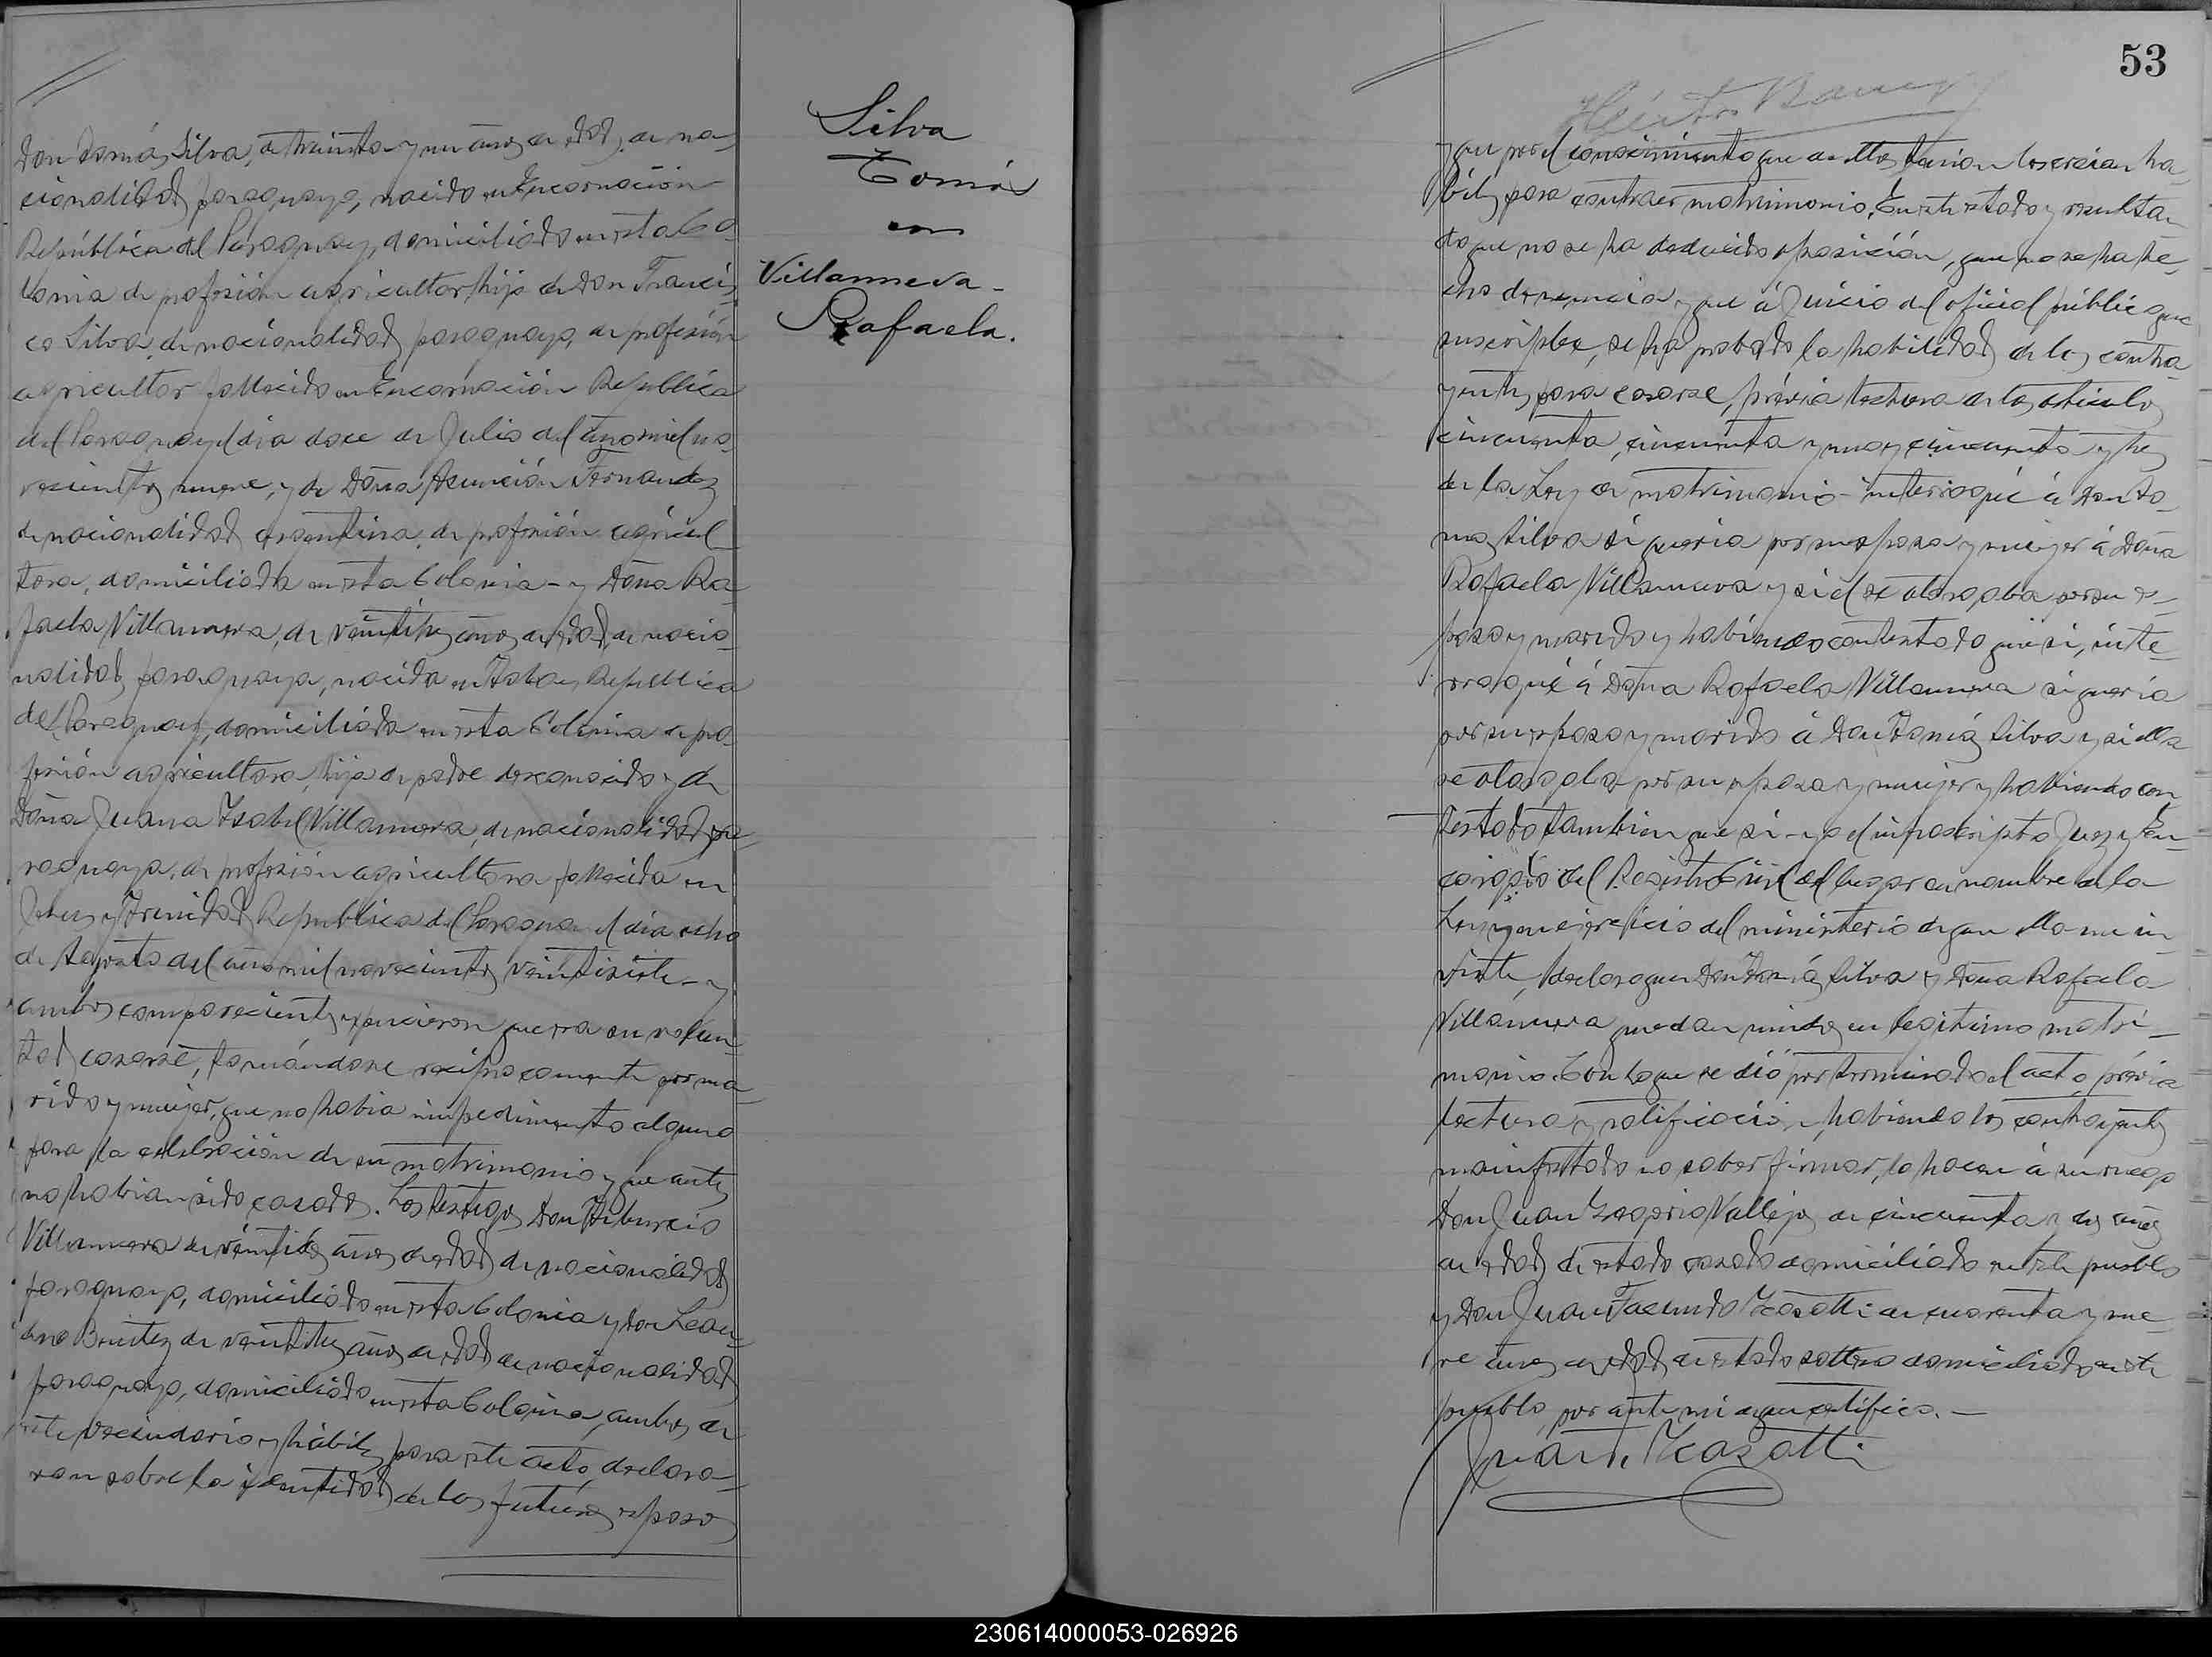 Don Tomás Silva, de treinta y un años de edad, de na-
cionalidad paraguaya, nacido en Encarnación
República del Paraguay, domiciliado en esta Co-
lonia de profesión agricultor hijo de Don Francis-
co Silva, de nacionalidad paraguaya, de profesión
agricultor fallecido en Encarnación República
del Paraguay el día doce de Julio del año mil no-
vecientos nueve, y de Doña Asunción Fernandez
de nacionalidad argentina, de profesión agricul-
tora, domiciliada en esta Colonia - y Doña Ra-
faela Villanueva, de veintitres años de edad, de nacio-
nalidad paraguaya, nacida en República
del Paraguay, domiciliada en esta Colonia de pro-
fesión agricultora, hija de padre desconocido y de
Doña Juana Isabel Villanueva, de nacionalidad pa-
raguaya, de profesión agricultora fallecida en
Jesus y Trinidad República del Paraguay el día ocho
de Agosto del año mil novecientos veintisiete - y
ambos comparecientes expusieron que era su volun-
tad casarse, tomándose recíprocamente por ma-
rido y mujer, que no habia impedimento alguno
para la celebración de su matrimonio y que antes
no habian sido casados. Los testigos Don Tiburcio
Villanueva de años de edad de nacionalidad
paraguaya, domiciliado en esta Colonia y Don Lean-
dro Benitez de veintitres años de edad de nacionalidad
paraguaya, domiciliado en esta Colonia, ambos de
este vecindario y hábiles para este acto, declara-
ron sobre la identidad de los futuros esposos
Silva
Tomás
con
Villanueva -
Rafaela.
53
y que por el conocimiento que de ellos tenian los creian há-
biles para contraer matrimonio. En este estado y resultan-
do que no se ha deducido oposición, que no se ha he-
cho denuncia y que á Juicio del oficial público que
suscribe, se ha probado la habilidad de los contra-
yentes para casarse, prévia lectura de los artículos
cincuenta, cincuenta y uno y cincuenta y tres
de la Ley de matrimonio - interrogué á Don To-
más Silva si queria por su esposa y mujer á Doña
Rafaela Villanueva y si el se otorgaba por su es-
poso y marido y habiendo contestado que si, inte-
rrogué á Doña Rafaela Villanueva si queria
por su esposo y marido á Don Tomás Silva y si ella
se otorgaba por su esposa y mujer y habiendo con-
testado tambien que si - yo el infrascripto Juez y En-
cargado del Registro Civil del lugar en nombre de la
Ley y en ejercicio del ministerio de que ella me in-
viste, declaro que Don Tomás Silva y Doña Rafaela
Villanueva quedan unidos en legitimo matri-
monio. Con lo que se dió por terminado el acto, prévia
lectura y ratificación, habiendo los contrayentes
manifestado no saber firmar, lo hacen á su ruego
Don Juan Gregorio Vallejos de cincuenta y dos años
de edad de estado casado domiciliado en este pueblo
y Don Juan Facundo de cuarenta y nue-
ve años de edad de estado soltero domiciliado en este
pueblo, por ante mi de que certifico. -
230614000053-026926